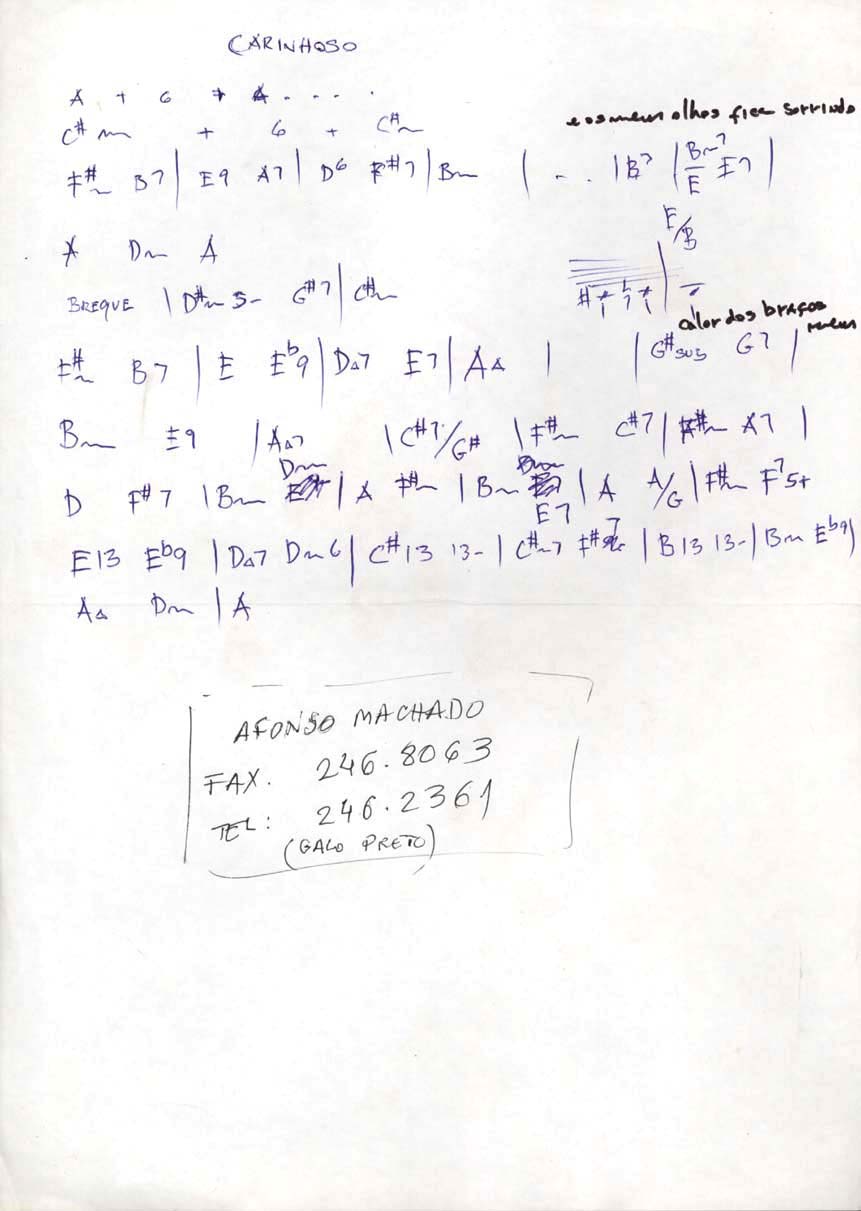 CARINHOSO
A + 6 + A - - - .
C#m + 6 + C#m
e os meus olhos ficam sorrindo
F#m B7 | E9 A7 | D6 F#7 | Bm | - . | B7 | Bm7/E E7 |
A Dm A
E/B
BREQUE | D#m 5- G#7 | C#m
calor dos braços meus
F#m B7 | E Eb9 | D△7 E7 | A△ | | G#sus G7 |
Bm E9 | A△7 | C#7/G# | F#m C#7 | F#m A7 |
Dm
D F#7 | Bm | A F#m | Bm E7 | A A/G | F#m F7 5+
E13 Eb9 | D△7 Dm6 | C#13 13- | C#m7 F#7 | B13 13- | Bm Eb9 |
A△ Dm | A
AFONSO MACHADO
FAX. 246.8063
TEL: 246.2361
(GALO PRETO)